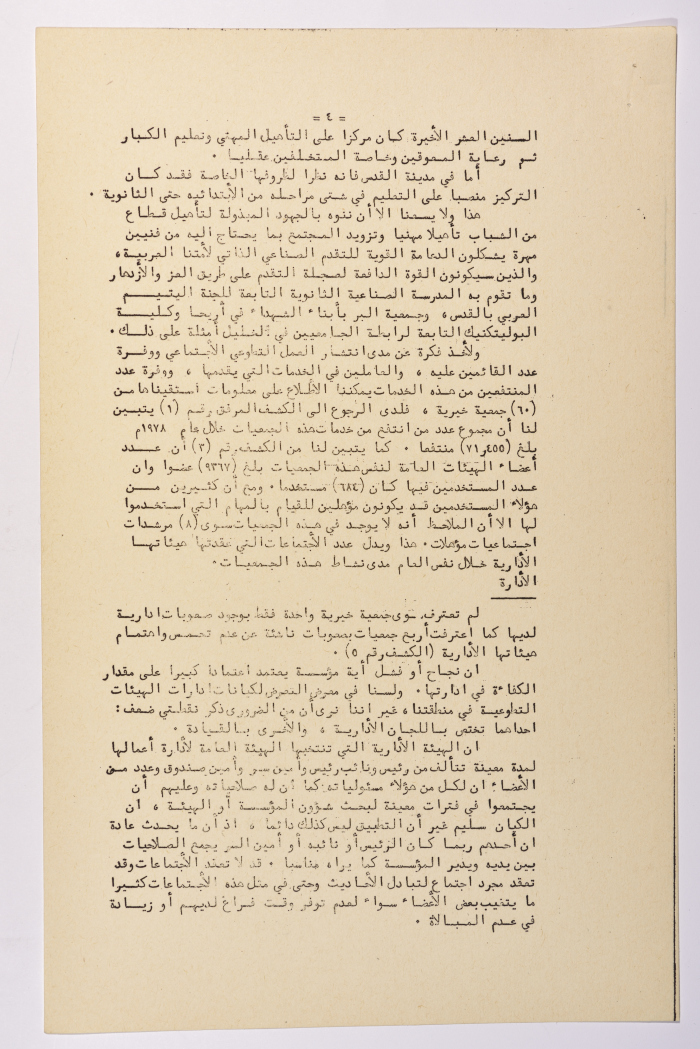 = ٤ =
السنين العشر الأخيرة كان مركزا على التأهيل المهني وتعليم الكبار
ثم رعاية المعوقين وخاصة المتخلفين عقليا .
أما في مدينة القدس فانه نظرا لظروفها الخاصة فقد كان
التركيز منصبا على التعليم في شتى مراحله من الأبتدائيه حتى الثانوية .
هذا ولا يسعنا الا أن ننوه بالجهود المبذولة لتأهيل قطاع
من الشباب تأهيلا مهنيا وتزويد المجتمع بما يحتاج اليه من فنيين
مهرة يشكلون الدعامة القوية للتقدم الصناعي الذاتي لأمتنا العربية،
والذين سيكونون القوة الدافعة لعجلة التقدم على طريق العز والأزدهار
وما تقوم به المدرسة الصناعية الثانوية التابعة للجنة اليتيم
العربي بالقدس، وجمعية البر بأبناء الشهداء في أريحا وكلية
البوليتكنيك التابعة لرابطة الجامعيين في الخليل أمثلة على ذلك .
ولأخذ فكرة عن مدى انتشار العمل التطوعي الأجتماعي ووفرة
عدد القائمين عليه ، والعاملين في الخدمات التي يقدمها ، ووفرة عدد
المنتفعين من هذه الخدمات يمكننا الأطلاع على معلومات استقيناها من
(٦٠) جمعية خيرية ، فلدى الرجوع الى الكشف المرفق رقم (١) يتبين
لنا أن مجموع عدد من انتفع من خدمات هذه الجمعيات خلال عام ١٩٧٨م
بلغ (٧١٫٤٥٥) منتفعا . كما يتبين لنا من الكشف رقم (٣) أن عدد
أعضاء الهيئات العامة لنفس هذه الجمعيات بلغ (٩٣٦٧) عضوا وان
عدد المستخدمين فيها كان (٦٨٤) مستخدما . ومع أن كثيرين من
هؤلاء المستخدمين قد يكونون مؤهلين للقيام بالمهام التي استخدموا
لها الا أن الملاحظ أنه لا يوجد في هذه الجمعيات سوى (٨) مرشدات
اجتماعيات مؤهلات . هذا ويدل عدد الأجتماعات التي عقدتها هيئاتها
الأدارية خلال نفس العام مدى نشاط هذه الجمعيات .
الأدارة
لم تعترف سوى جمعية خيرية واحدة فقط بوجود صعوبات ادارية
لديها كما اعترفت أربع جمعيات بصعوبات ناشئة عن عدم تحمس واهتمام
هيئاتها الأدارية (الكشف رقم ٥) .
ان نجاح أو فشل أية مؤسسة يعتمد اعتمادا كبيرا على مقدار
الكفاءة في ادارتها . ولسنا في معرض التعرض لكيانات ادارات الهيئات
التطوعية في منطقتنا، غير اننا نرى أن من الضروري ذكر نقطتي ضعف :
احداهما تختص باللجان الأدارية ، والأخرى بالقيادة .
ان الهيئة الأدارية التي تنتخبها الهيئة العامة لأدارة أعمالها
لمدة معينة تتألف من رئيس ونائب رئيس وأمين سر وأمين صندوق وعدد من
الأعضاء ان لكل من هؤلاء مسئولياته كما أن له صلاحياته وعليهم أن
يجتمعوا في فترات معينة لبحث شؤون المؤسسة أو الهيئة ، ان
الكيان سليم غير أن التطبيق ليس كذلك دائما ، اذ أن ما يحدث عادة
ان أحدهم ربما كان الرئيس أو نائبه أو أمين السر يجمع الصلاحيات
بين يديه ويدير المؤسسة كما يراه مناسبا . قد لا تعقد الأجتماعات وقد
تعقد مجرد اجتماع لتبادل الأحاديث وحتى في مثل هذه الأجتماعات كثيرا
ما يتغيب بعض الأعضاء سواء لعدم توفر وقت فراغ لديهم أو زيادة
في عدم المبالاة .